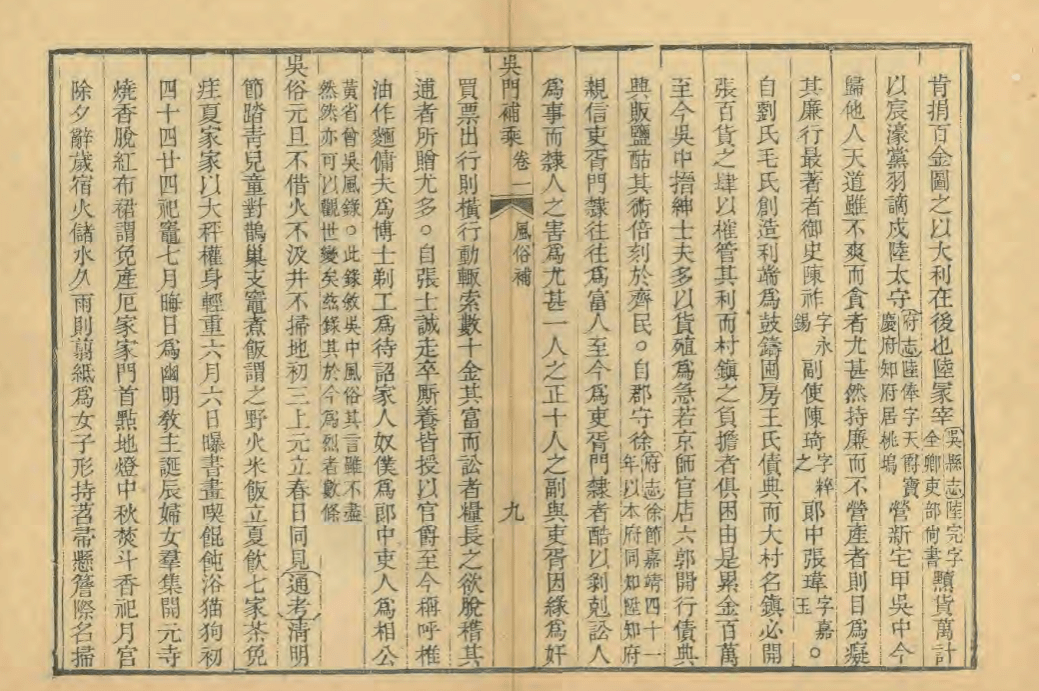 肯捐百金圖之以大利在後也陸冢宰吳縣志陸完字全卿吏部尙書黷貨萬計
以宸濠黨羽謫戍陸太守府志陸俸字天爵寶慶府知府居桃塢營新宅甲吳中今
歸他人天道雖不爽而食者尤甚然持廉而不營產者則目爲癡
其廉行最著者御史陳祚字永錫副使陳琦字粹之郎中張瑋字嘉玉。
自劉氏毛氏創造利端爲鼓鑄囤房王氏債典而大村名鎭必開
張百貨之肆以榷管其利而村鎭之負擔者俱困由是累金百萬
至今吳中搢紳士夫多以貨殖爲急若京師官店六郭開行債典
興販鹽酤其術倍刻於齊民。自郡守徐府志徐節嘉靖四十一年以本府同知陞知府
親信吏胥門隸往往爲富人至今爲吏胥門隸者酷以剥剋訟人
爲事而隸人之害爲尤甚一人之正十人之副與吏胥因緣爲奸
吳門補乘 卷一 風俗補 九
買票出行則橫行動輒索數十金其富而訟者糧長之欲脫稽其
逋者所贈尤多。自張士誠走卒厮養皆授以官爵至今稱呼椎
油作麵傭夫爲博士剃工爲待詔家人奴僕爲郎中吏人爲相公
黃省曾吳風錄。此錄敘吳中風俗其言雖不盡
然然亦可以觀世變矣茲錄其於今爲烈者數條
吳俗元旦不借火不汲井不掃地初三上元立春日同見通考淸明
節踏靑兒童對鵲巢支竈煮飯謂之野火米飯立夏飮七家茶免
疰夏家家以大秤權身輕重六月六日曝書畫喫餛飩浴猫狗初
四十四廿四祀竈七月晦日爲幽明敎主誕辰婦女羣集開元寺
燒香脫紅布裙謂免產厄家家門首點地燈中秋焚斗香祀月宮
除夕辭歲宿火儲水久雨則翦紙爲女子形持苕帚懸簷際名掃